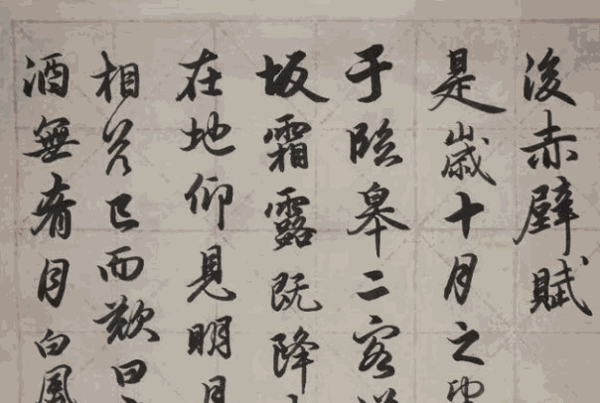 後赤壁賦
是歲十月之望
于臨皋二客
坂霜露既降
在地仰見明月
相答已而歎曰
酒無肴月白風